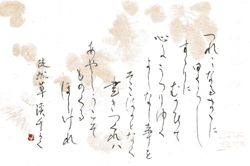 つれ〳〵なるまゝに
日くらし
すゝりに
むかひて
心にうつりゆく
よしなし事を
そこはかとなく
書きつくれハ
あやしうこそ
ものくる
ほしけれ
徒然草